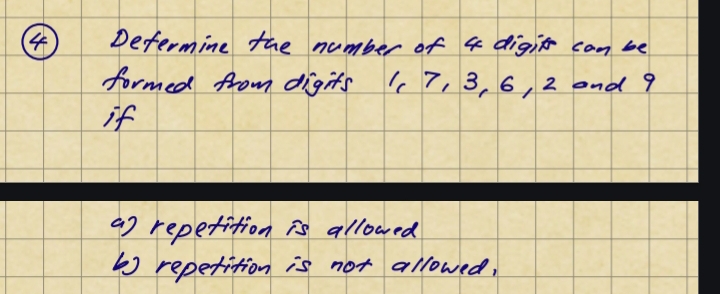 4 Determine the number of 4 digits can be
formed from digits 1, 7, 3, 6, 2 and 9
if
a) repetition is allowed
b) repetition is not allowed.